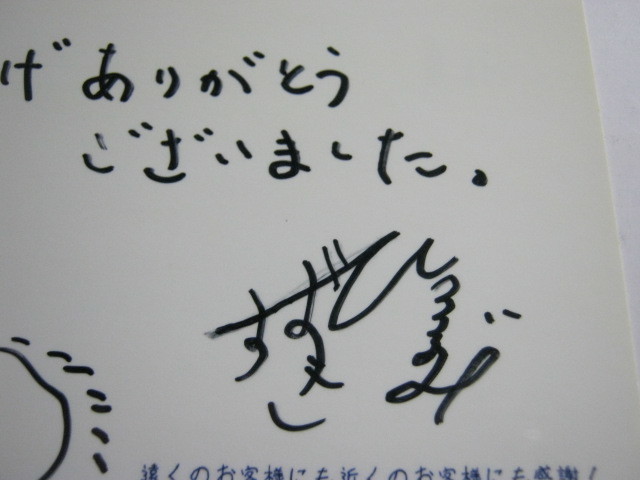 げ ありがとう
ございました。
遠くのお客様にも近くのお客様にも感謝！